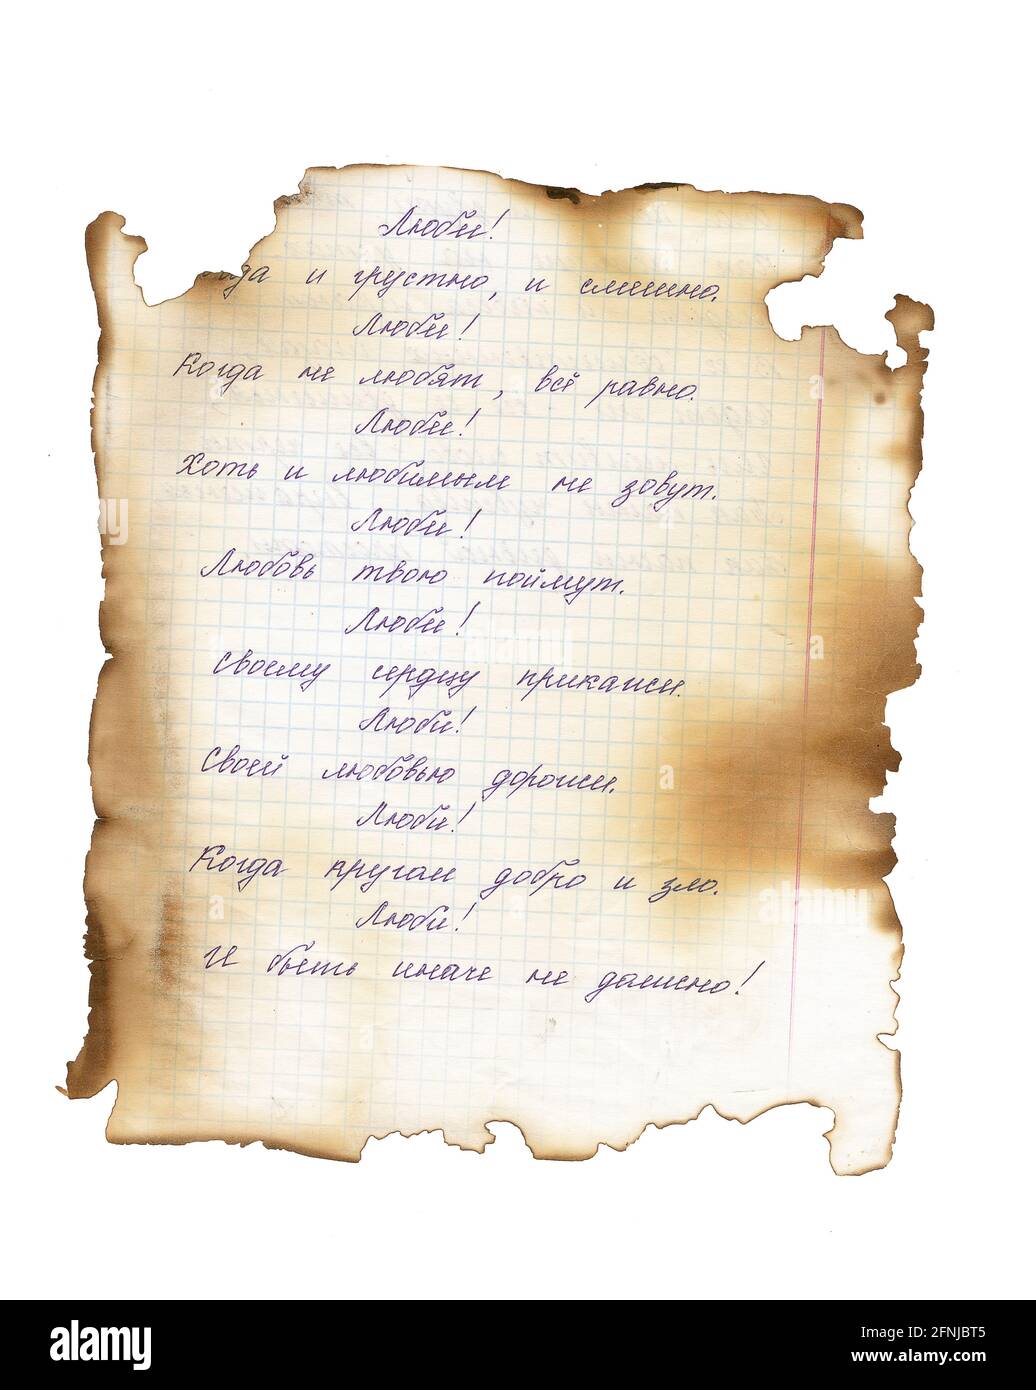 Люби!
гда и грустно, и смешно.
Люби!
Когда не любят, всё равно.
Люби!
Хоть и любимым не зовут.
Люби!
Любовь твою поймут.
Люби!
Своему сердцу прикажи.
Люби!
Своей любовью дорожи.
Люби!
Когда кругом добро и зло.
Люби!
И быть иначе не должно!
alamy
Image ID: 2FNJBT5
www.alamy.com